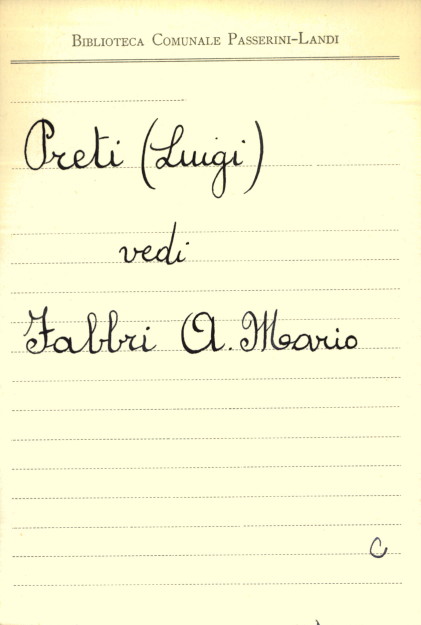 Biblioteca Comunale Passerini-Landi
Preti (Luigi)
vedi
Fabbri A. Mario
C